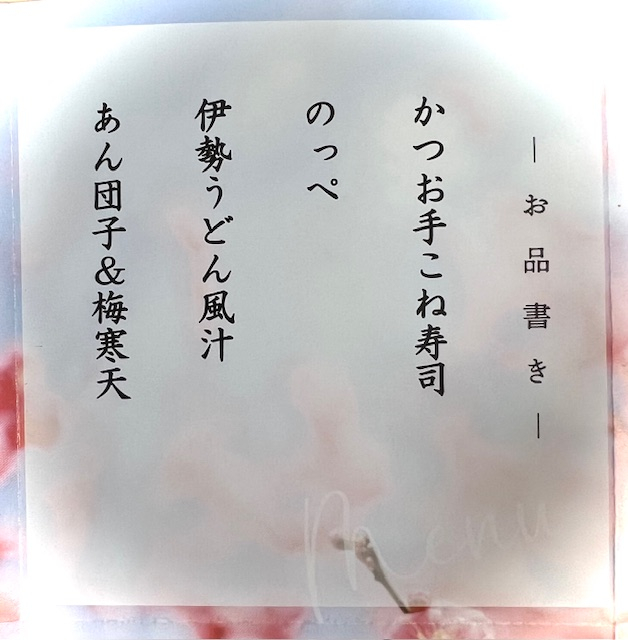 ― お品書き ―
かつお手こね寿司
のっぺ
伊勢うどん風汁
あん団子&梅寒天
Menu